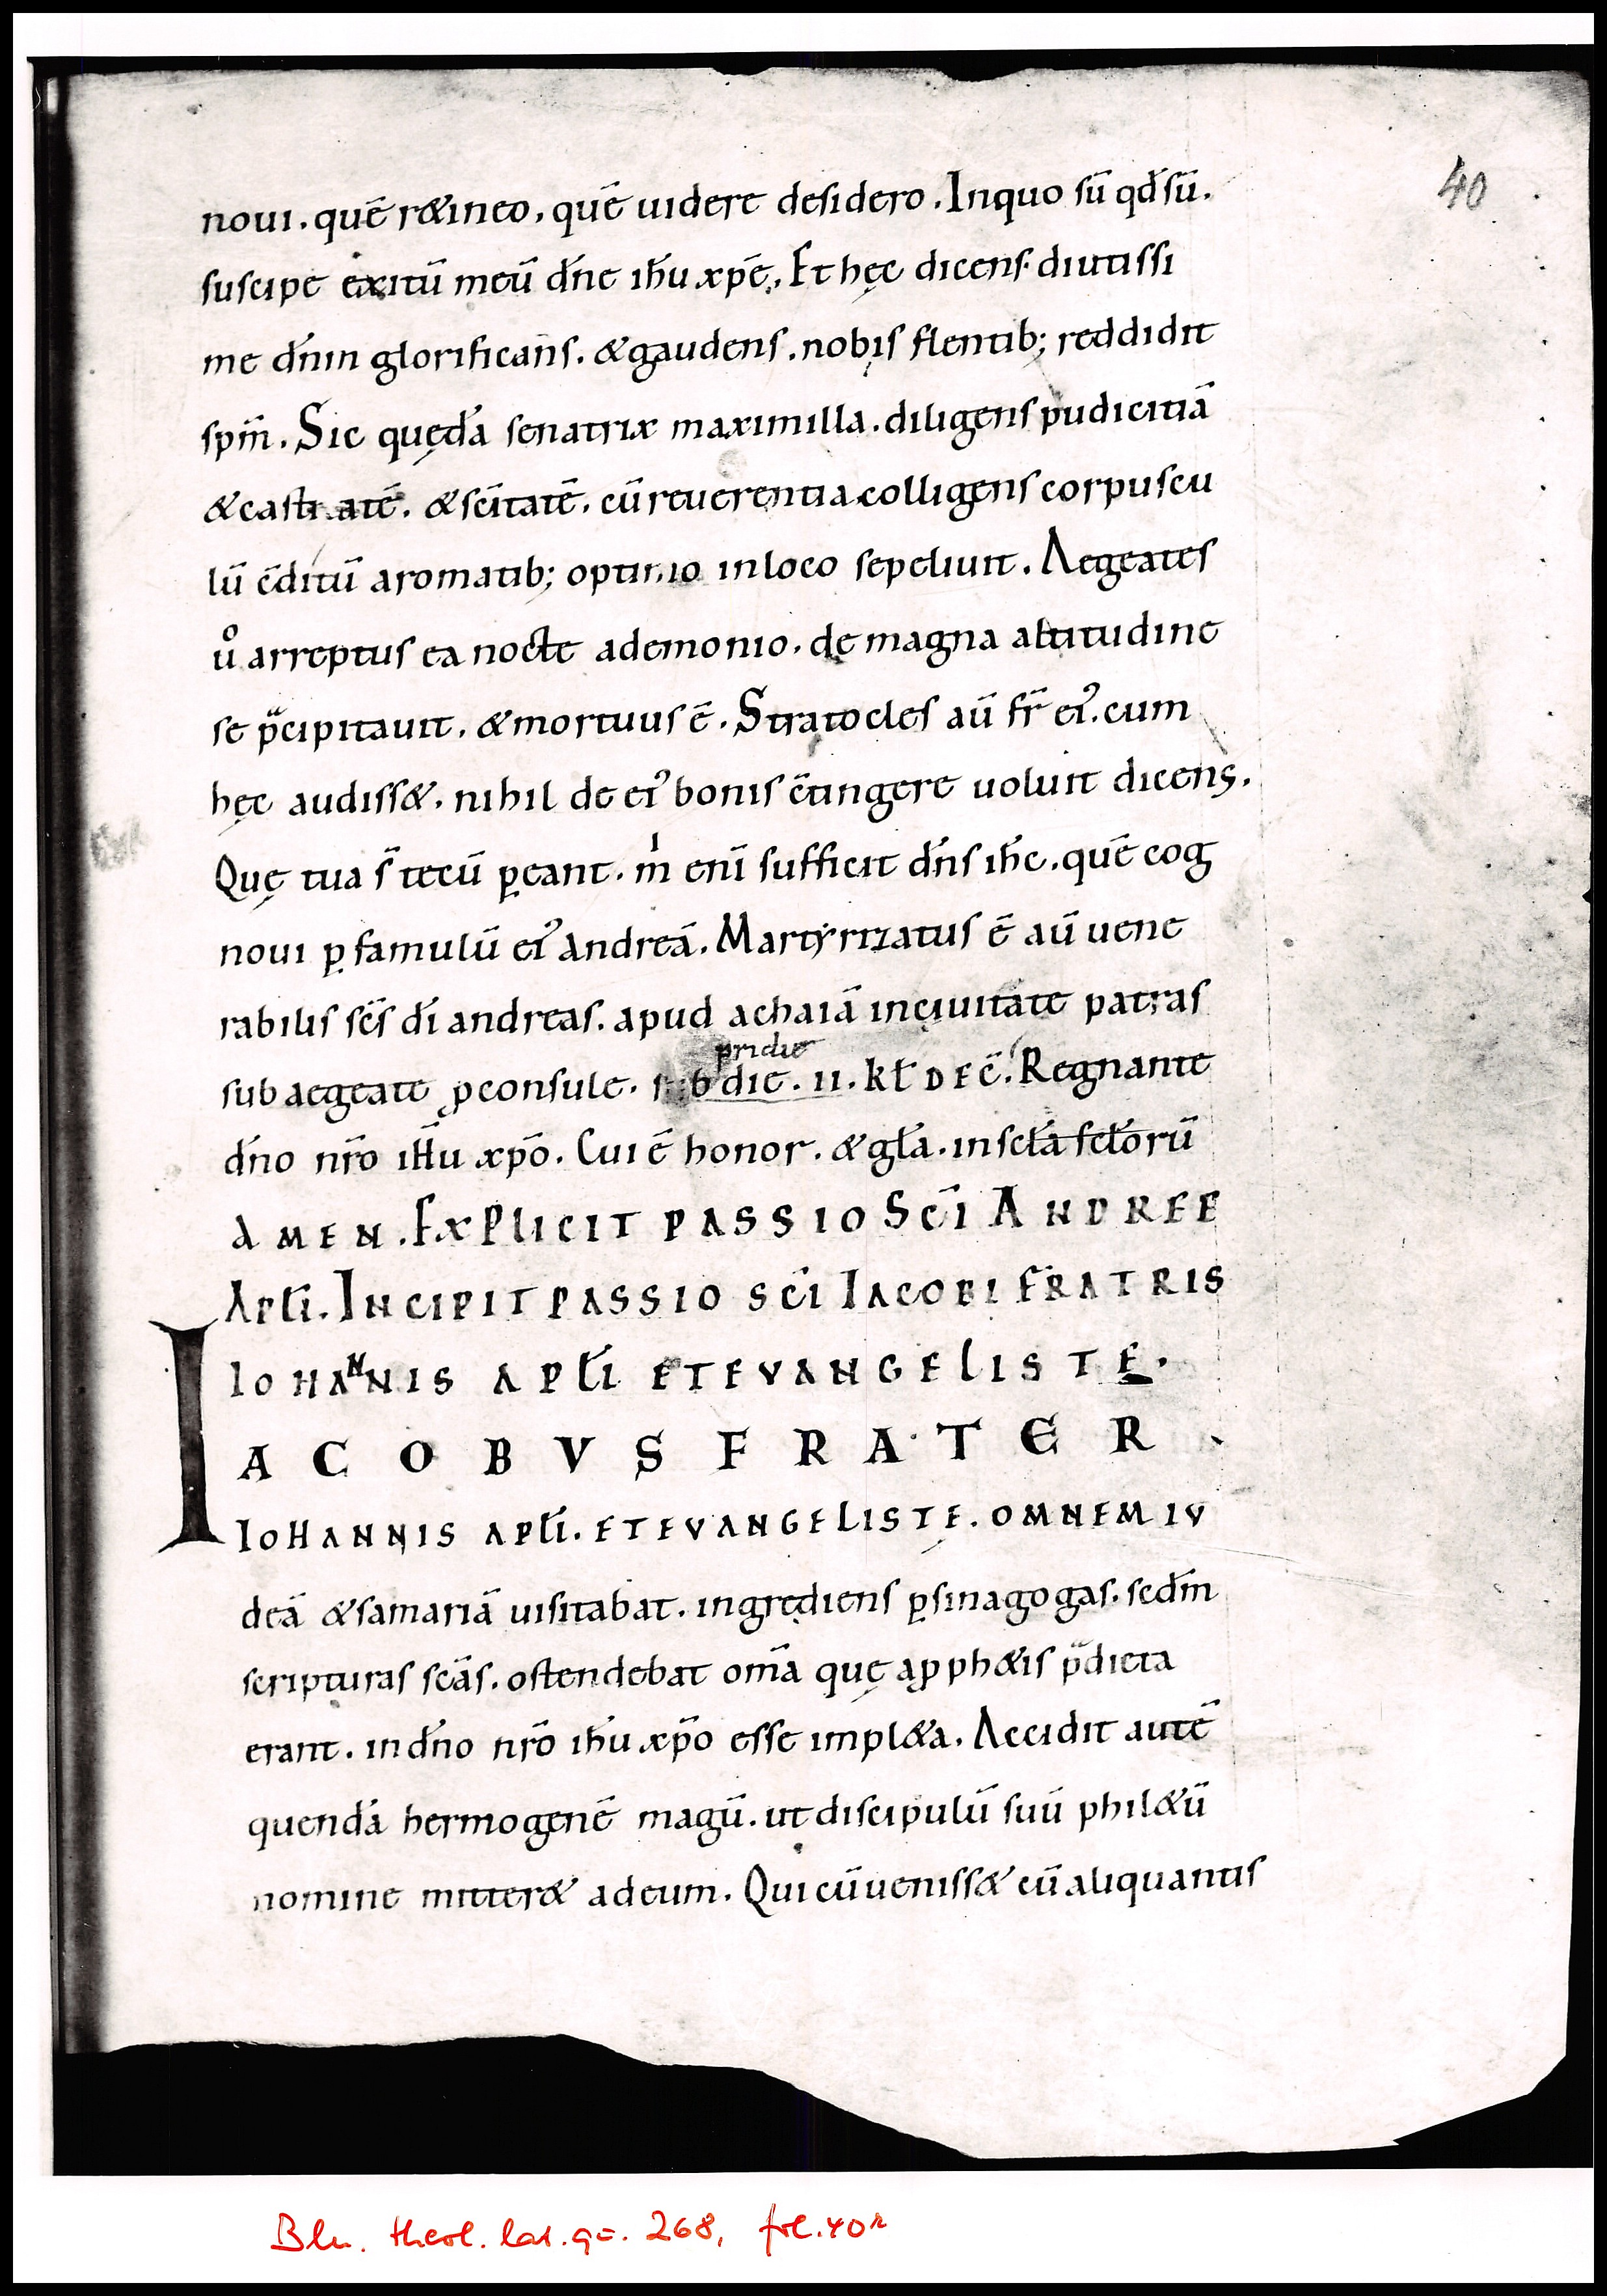 40
noui. quē r&ineo, quē uidere desidero. Inquo sū qd̄ sū.
suscipe exitū meū dn̄e ih̄u xp̄e. Et hęc dicens. diutissi
me dn̄m glorificans. & gaudens. nobis flentib; reddidit
spm̄. Sic quędā senatrix maximilla. diligens pudicitiā
& castitatē. & sc̄itatē. cū reuerentia colligens corpuscu
lū c̄ditū aromatib; optimo inloco sepeliuit. Aegeates
uͦ arreptus ea nocte ademonio. de magna altitudine
se p̄cipitauit. & mortuus ē. Stratocles aū fr̄ eiꝰ. cum
hęc audiss&. nihil de eiꝰ bonis c̄tingere uoluit dicens.
Quę tua s̄ tecū ꝑeant. m̍ enī sufficit dn̄s ih̄c. quē cog
noui ꝑ famulū eiꝰ andreā. Martyrizatus ē aū uene
rabilis sc̄s dī andreas. apud achaiā inciuitate patras
pridie
sub aegeate ꝓconsule. sub die. II. kl̄ DEC̄. Regnante
dn̄o nr̄o ih̄u xp̄o. Cui ē honor. & gl̄a. in scl̄a scl̄orū
AMEN. EXPLICIT PASSIO SC̄I ANDREE
APl̄I. INCIPIT PASSIO SC̄I IACOBI FRATRIS
IOHANNIS APl̄I ET EVANGELISTĘ.
IACOBVS FRATER
IOHANNIS APl̄I. ET EVANGELISTĘ. OMNEM IV
deā & samariā uisitabat. ingrediens ꝑ sinagogas. secdm̄
scripturas sc̄as. ostendebat om̄a quę aꝓph&is p̄dicta
erant. in dn̄o nr̄o ih̄u xp̄o esse impl&a. Accidit autē
quendā hermogenē magū. ut discipulū suū phil&ū
nomine mitter& adeum. Qui cū ueniss& cū aliquantis
Bln. theol. lat. qo. 268, fol. 40r